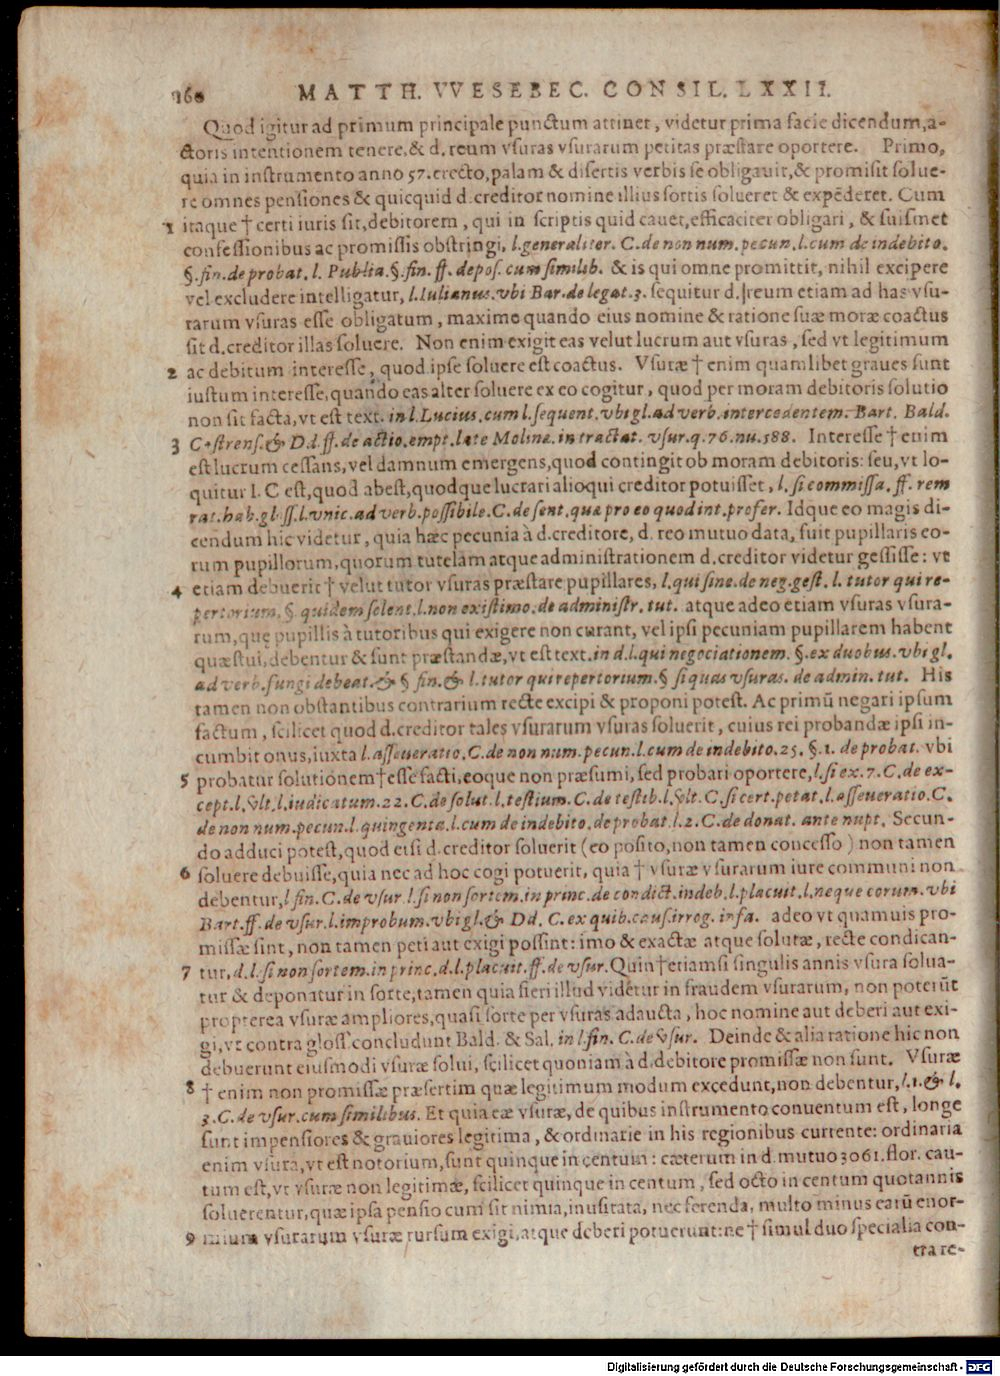 160 MATTH. VVESEBEC. CONSIL. LXXII.
Quod igitur ad primum principale punctum attinet, videtur prima facie dicendum, a-
ctoris intentionem tenere, & d. reum vsuras vsurarum petitas præstare oportere. Primo,
quia in instrumento anno 57. erecto, palam & disertis verbis se obligauit, & promisit solue-
re omnes pensiones & quicquid d. creditor nomine illius sortis solueret & expēderet. Cum
1 itaque † certi iuris sit, debitorem, qui in scriptis quid cauet, efficaciter obligari, & suismet
confessionibus ac promissis obstringi, l. generaliter. C. de non num. pecun. l. cum de indebito.
§. fin. de probat. l. Publia. §. fin. ff. depos. cum similib. & is qui omne promittit, nihil excipere
vel excludere intelligatur, l. Iulianus. vbi Bar. de legat. 3. sequitur d. reum etiam ad has vsu-
rarum vsuras esse obligatum, maxime quando eius nomine & ratione suæ moræ coactus
sit d. creditor illas soluere. Non enim exigit eas velut lucrum aut vsuras, sed vt legitimum
2 ac debitum interesse, quod ipse soluere est coactus. Vsuræ † enim quamlibet graues sunt
iustum interesse, quando eas alter soluere ex eo cogitur, quod per moram debitoris solutio
non sit facta, vt est text. in l. Lucius. cum l. sequent. vbi gl. ad verb. intercedentem. Bart. Bald.
3 Castrens. & Dd. ff. de actio. empt. late Molinæ. in tractat. vsur. q. 76. nu. 588. Interesse † enim
est lucrum cessans, vel damnum emergens, quod contingit ob moram debitoris: seu, vt lo-
quitur I. C est, quod abest, quodque lucrari alioqui creditor potuisset, l. si commissa. ff. rem
rat. hab. gloss. l. vnic. ad verb. possibile. C. de sent. quæ pro eo quod int. profer. Idque eo magis di-
cendum hic videtur, quia hæc pecunia à d. creditore, d. reo mutuo data, fuit pupillaris eo-
rum pupillorum, quorum tutelam atque administrationem d. creditor videtur gessisse: vt
4 etiam debuerit † velut tutor vsuras præstare pupillares, l. qui sine. de neg. gest. l. tutor qui re-
pertorium. §. quidem solent. l. non existimo. de administr. tut. atque adeo etiam vsuras vsura-
rum, quę pupillis à tutoribus qui exigere non curant, vel ipsi pecuniam pupillarem habent
quæstui, debentur & sunt præstandæ, vt est text. in d. l. qui negociationem. §. ex duobus. vbi gl.
ad verb. fungi debeat. & § fin. & l. tutor qui repertorium. § si quas vsuras. de admin. tut. His
tamen non obstantibus contrarium recte excipi & proponi potest. Ac primū negari ipsum
factum, scilicet quod d. creditor tales vsurarum vsuras soluerit, cuius rei probandæ ipsi in-
cumbit onus, iuxta l. asseueratio. C. de non num. pecun. l. cum de indebito. 25. §. 1. de probat. vbi
5 probatur solutionem † esse facti, eoque non præsumi, sed probari oportere, l. si ex. 7. C. de ex-
cept. l. vlt. l. iudicatum. 22. C. de solut. l. testium. C. de testib. l. vlt. C. si cert. petat. l. asseueratio. C.
de non num. pecun. l. quingenta. l. cum de indebito. de probat. l. 2. C. de donat. ante nupt. Secun-
do adduci potest, quod etsi d. creditor soluerit (eo posito, non tamen concesso) non tamen
6 soluere debuisse, quia nec ad hoc cogi potuerit, quia † vsuræ vsurarum iure communi non
debentur, l. fin. C. de vsur. l. si non sortem. in princ. de condict. indeb. l. placuit. l. neque eorum. vbi
Bart. ff. de vsur. l. improbum. vbi gl. & Dd. C. ex quib. caus. irrog. infa. adeo vt quamuis pro-
missæ sint, non tamen peti aut exigi possint: imo & exactæ atque solutæ, recte condican-
7 tur, d. l. si non sortem. in princ. d. l. placuit. ff. de vsur. Quin † etiamsi singulis annis vsura solua-
tur & deponatur in sorte, tamen quia fieri illud videtur in fraudem vsurarum, non poterūt
propterea vsuræ ampliores, quasi sorte per vsuras adaucta, hoc nomine aut deberi aut exi-
gi, vt contra gloss. concludunt Bald. & Sal. in l. fin. C. de vsur. Deinde & alia ratione hic non
debuerunt eiusmodi vsuræ solui, scilicet quoniam à d. debitore promissæ non sunt. Vsuræ
8 † enim non promissæ præsertim quæ legitimum modum excedunt, non debentur, l. 1. & l.
3. C. de vsur. cum similibus. Et quia eæ vsuræ, de quibus instrumento conuentum est, longe
sunt impensiores & grauiores legitima, & ordinarie in his regionibus currente: ordinaria
enim vsura, vt est notorium, sunt quinque in centum: cæterum in d. mutuo 3061. flor. cau-
tum est, vt vsuræ non legitimæ, scilicet quinque in centum, sed octo in centum quotannis
soluerentur, quæ ipsa pensio cum sit nimia, inusitata, nec ferenda, multo minus earū enor-
9 mium vsurarum vsuræ rursum exigi, atque deberi potuerunt: ne † simul duo specialia con-
tra re-
Digitalisierung gefördert durch die Deutsche Forschungsgemeinschaft - DFG